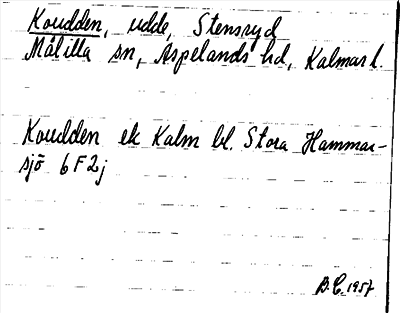 Koudden, udde, Stensryd
Målilla sn, Aspelands hd, Kalmar l.
Koudden ek Kalm bl. Stora Hammar-
sjö 6 F 2 j
B.E. 1957